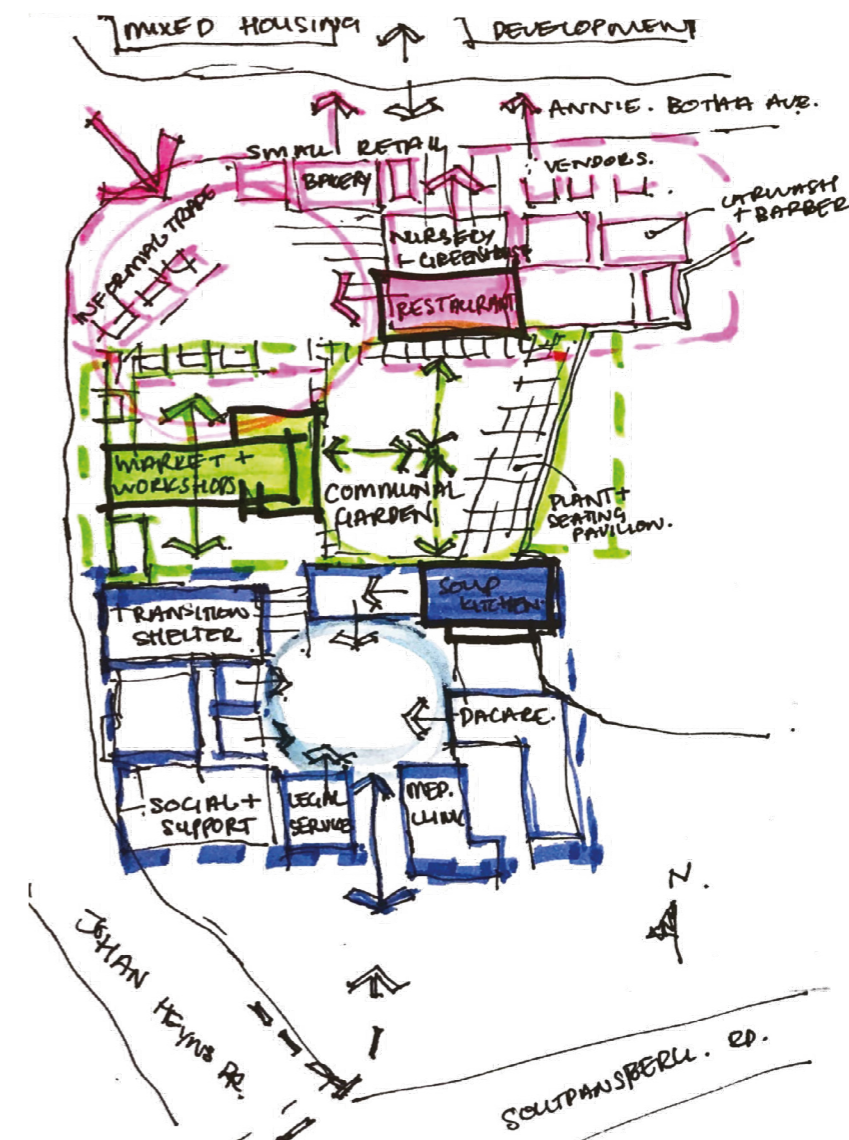 MIXED HOUSING
DEVELOPMENT
ANNIE. BOTHA AVE.
SMALL RETAIL
BAKERY
VENDORS.
CARWASH
+ BARBER
INFORMAL TRADE
NURSERY
+ GREENHOUSE
RESTAURANT
MARKET +
WORKSHOPS
COMMUNAL
GARDEN
PLANT +
SEATING
PAVILION.
SOUP
KITCHEN
TRANSITION
SHELTER
DACARE.
SOCIAL +
SUPPORT
LEGAL
SERVICE
MED.
CLINIC
N.
JOHAN HEYNS DR.
SOUTPANSBERG. RD.